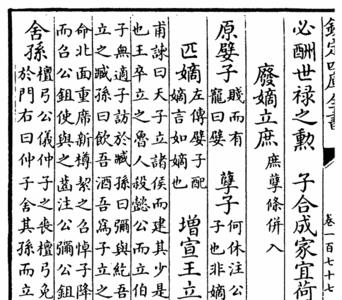 欽定四庫全書 卷一百七十七
必酬世禄之勲 子合成家宜荷
廢嫡立庶 庶孽條併入
原嬖子 賤而有寵曰嬖 孽子 何休注公子也非嫡
匹嫡 左傳嬖子配嫡言如嫡也 增宣王立
甫諫曰天子立諸侯而建其少是
也王卒立之魯人殺懿公而立伯
子無適子訪於臧孫曰彌與紇吾
立之臧孫曰飲吾酒吾為子立之
命北面重席新樽絜之召悼子降
而召公鉏使與之齒注公彌公鉏
舍孫 檀弓公儀仲子之喪檀弓免
於門右曰仲子舍其孫而立